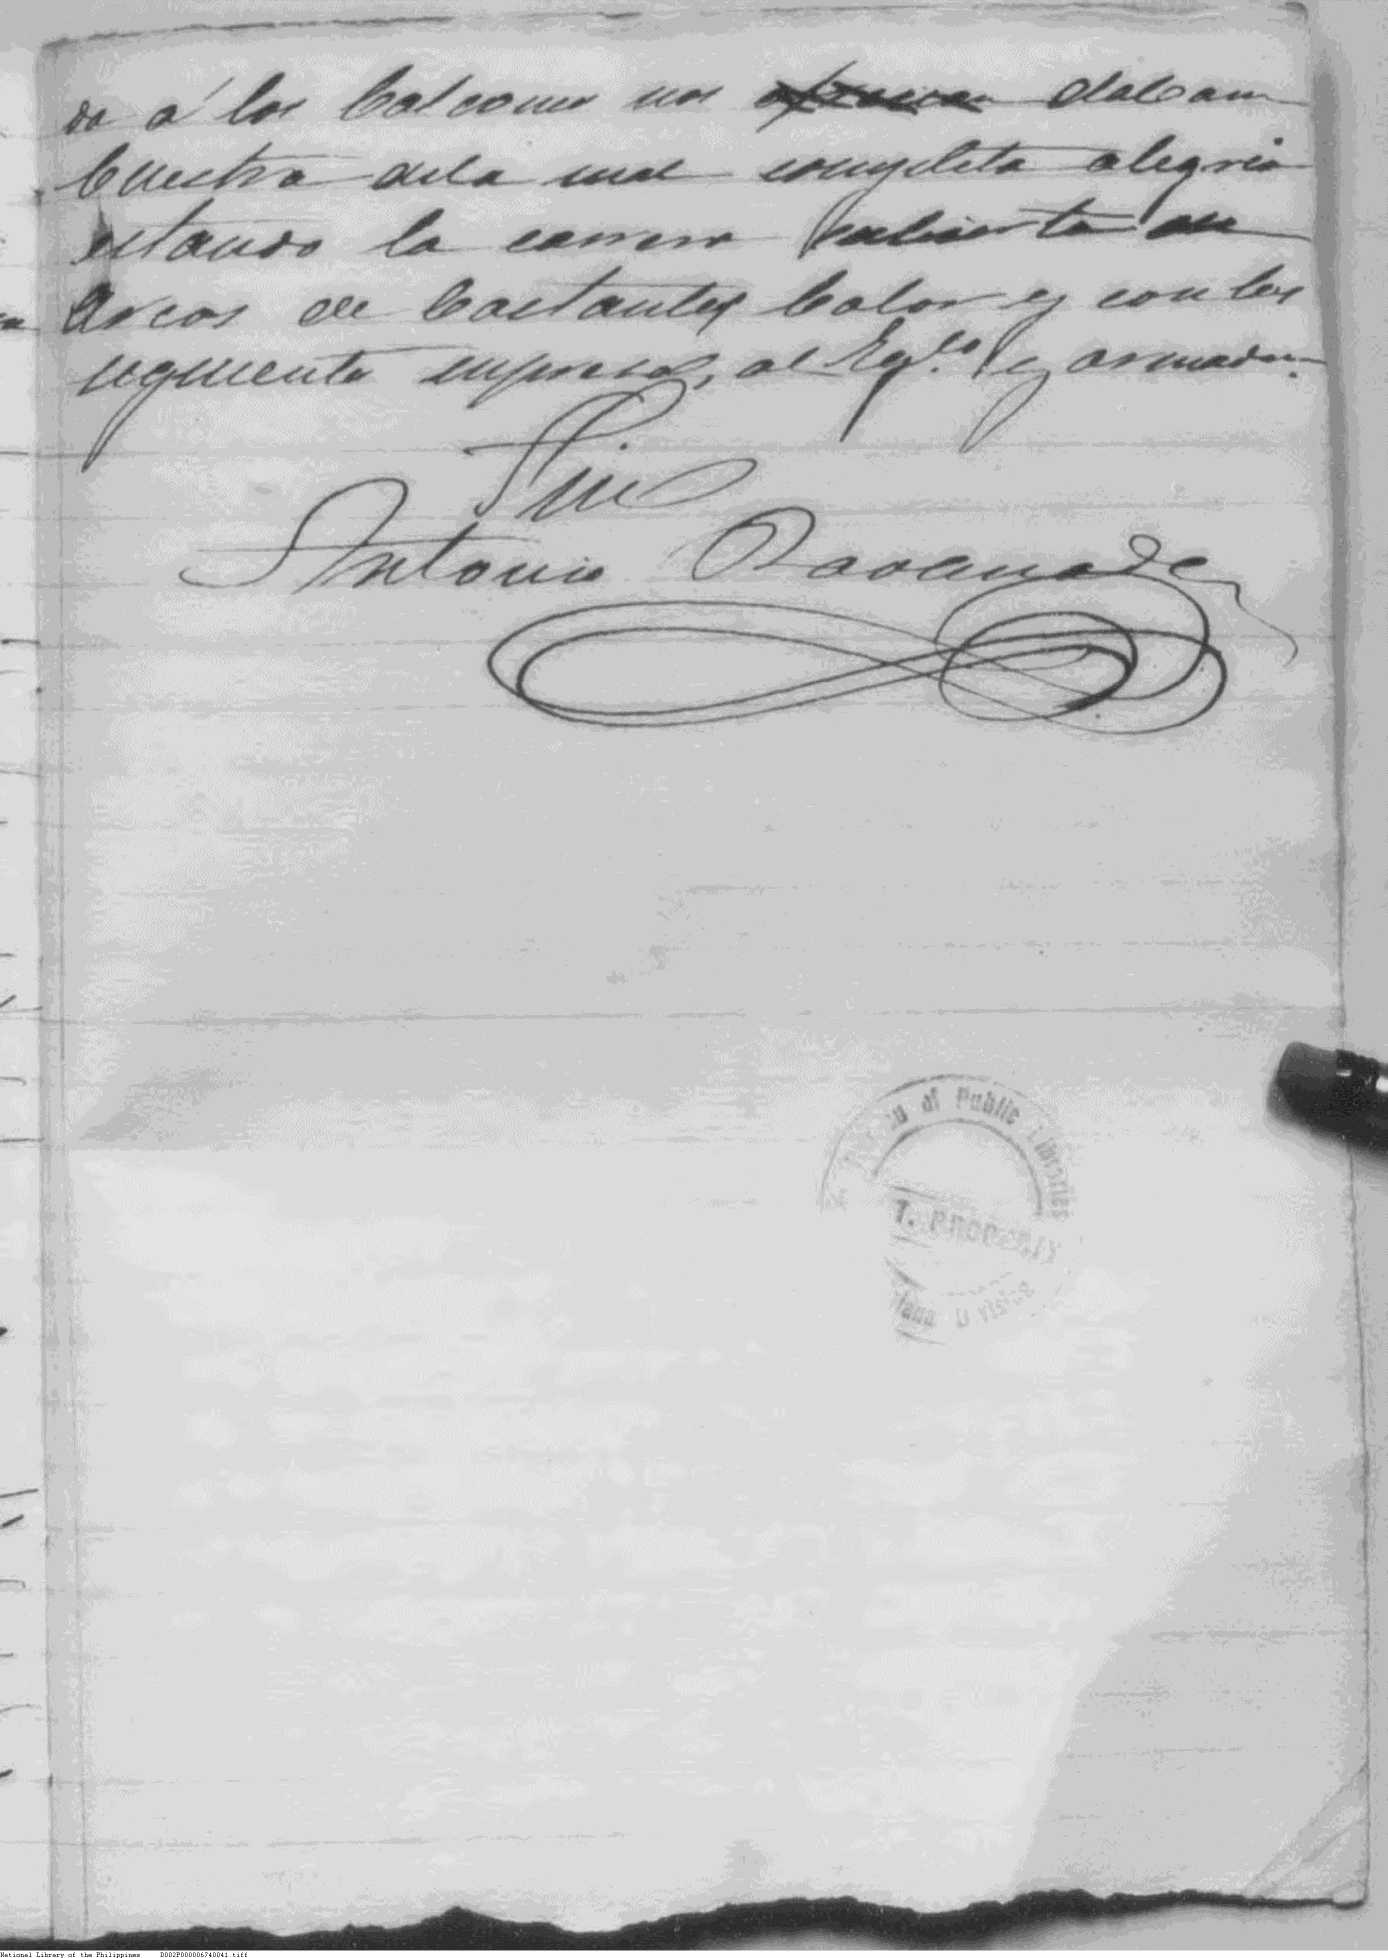 do á los balcones nos daban
buestra dela mas completa alegria
estando la carrera cubierta de
Arcos de bastantes balor y con los
siguientes empresas, al Egto y armada.
Fin
Antonio
Bureau of Public Libraries
T. PROPERTY
National Library of the Philippines D002P000006740041.tiff